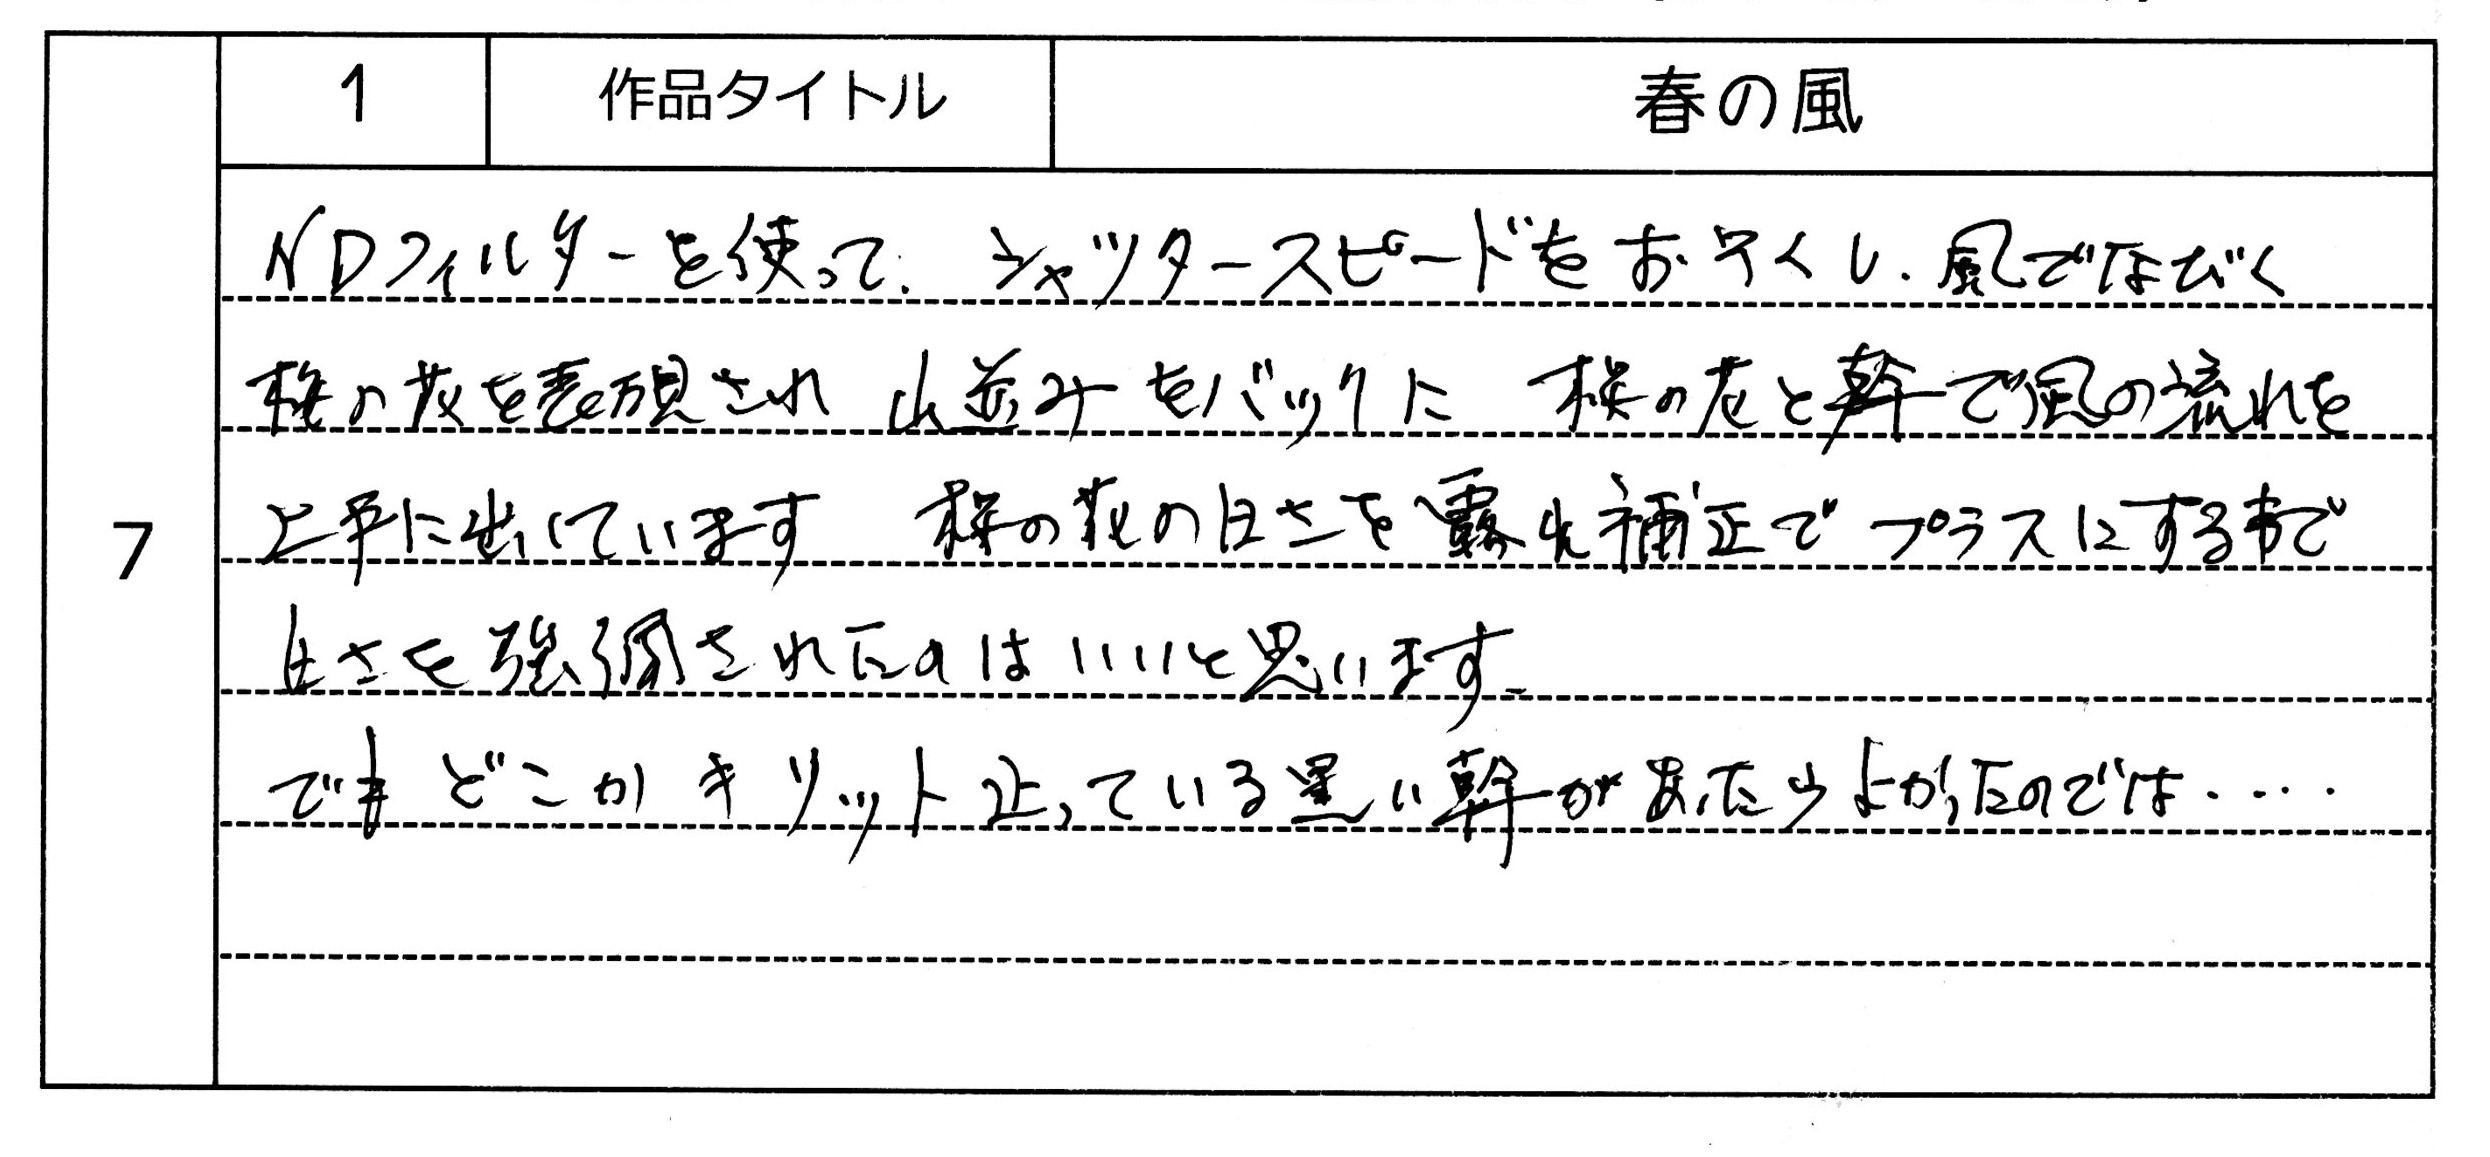 1 作品タイトル 春の風
NDフィルターを使って、シャッタースピードをおそくし、風でなびく
桜の花を表現され 山並みをバックに 桜の花と幹で風の流れを
7
上手に出しています 桜の花の白さを露光補正でプラスにする事で
白さを強調されたのはいいと思います。
でも どこか キリット 止っている黒い幹があったらよかったのでは・・・・